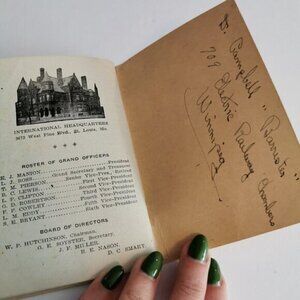 INTERNATIONAL HEADQUARTERS
3673 West Pine Blvd., St. Louis, Mo.
ROSTER OF GRAND OFFICERS
J. MANION, President
L. J. ROSS, Grand Secretary and Treasurer
T. M. PIERSON, Senior Vice-Pres., Retired
C. LEWIS, First Vice-President
L. P. CLIFTON, Second Vice-President
D. ROBERTSON, Third Vice-President
F. P. COWLEY, Fourth Vice-President
L. M. EDDY, Fifth Vice-President
S. E. BRYANT, Sixth Vice-President
BOARD OF DIRECTORS
W. P. HUTCHINSON, Chairman.
G. E. JOYSTER, Secretary.
J. F. MILLER.
R. E. NASON.
D. C. SMART.
Campbell "Barrister"
709 Electric Railway Chambers
Winnipeg